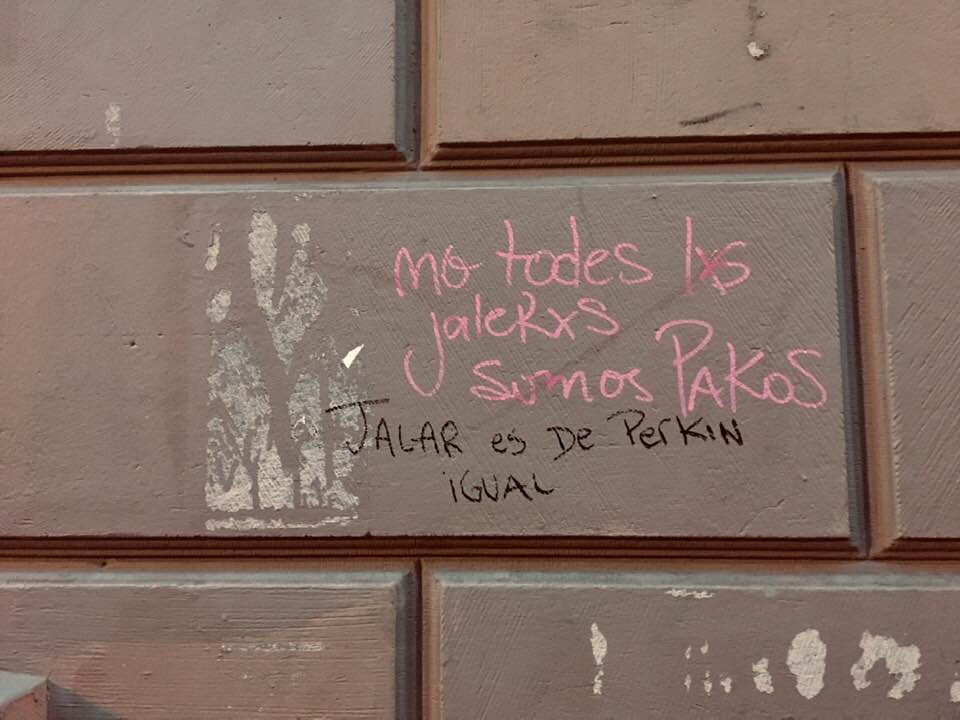 no todes lxs
jalerxs
somos PAKOS
JALAR es DE PerKIN
iGUAL